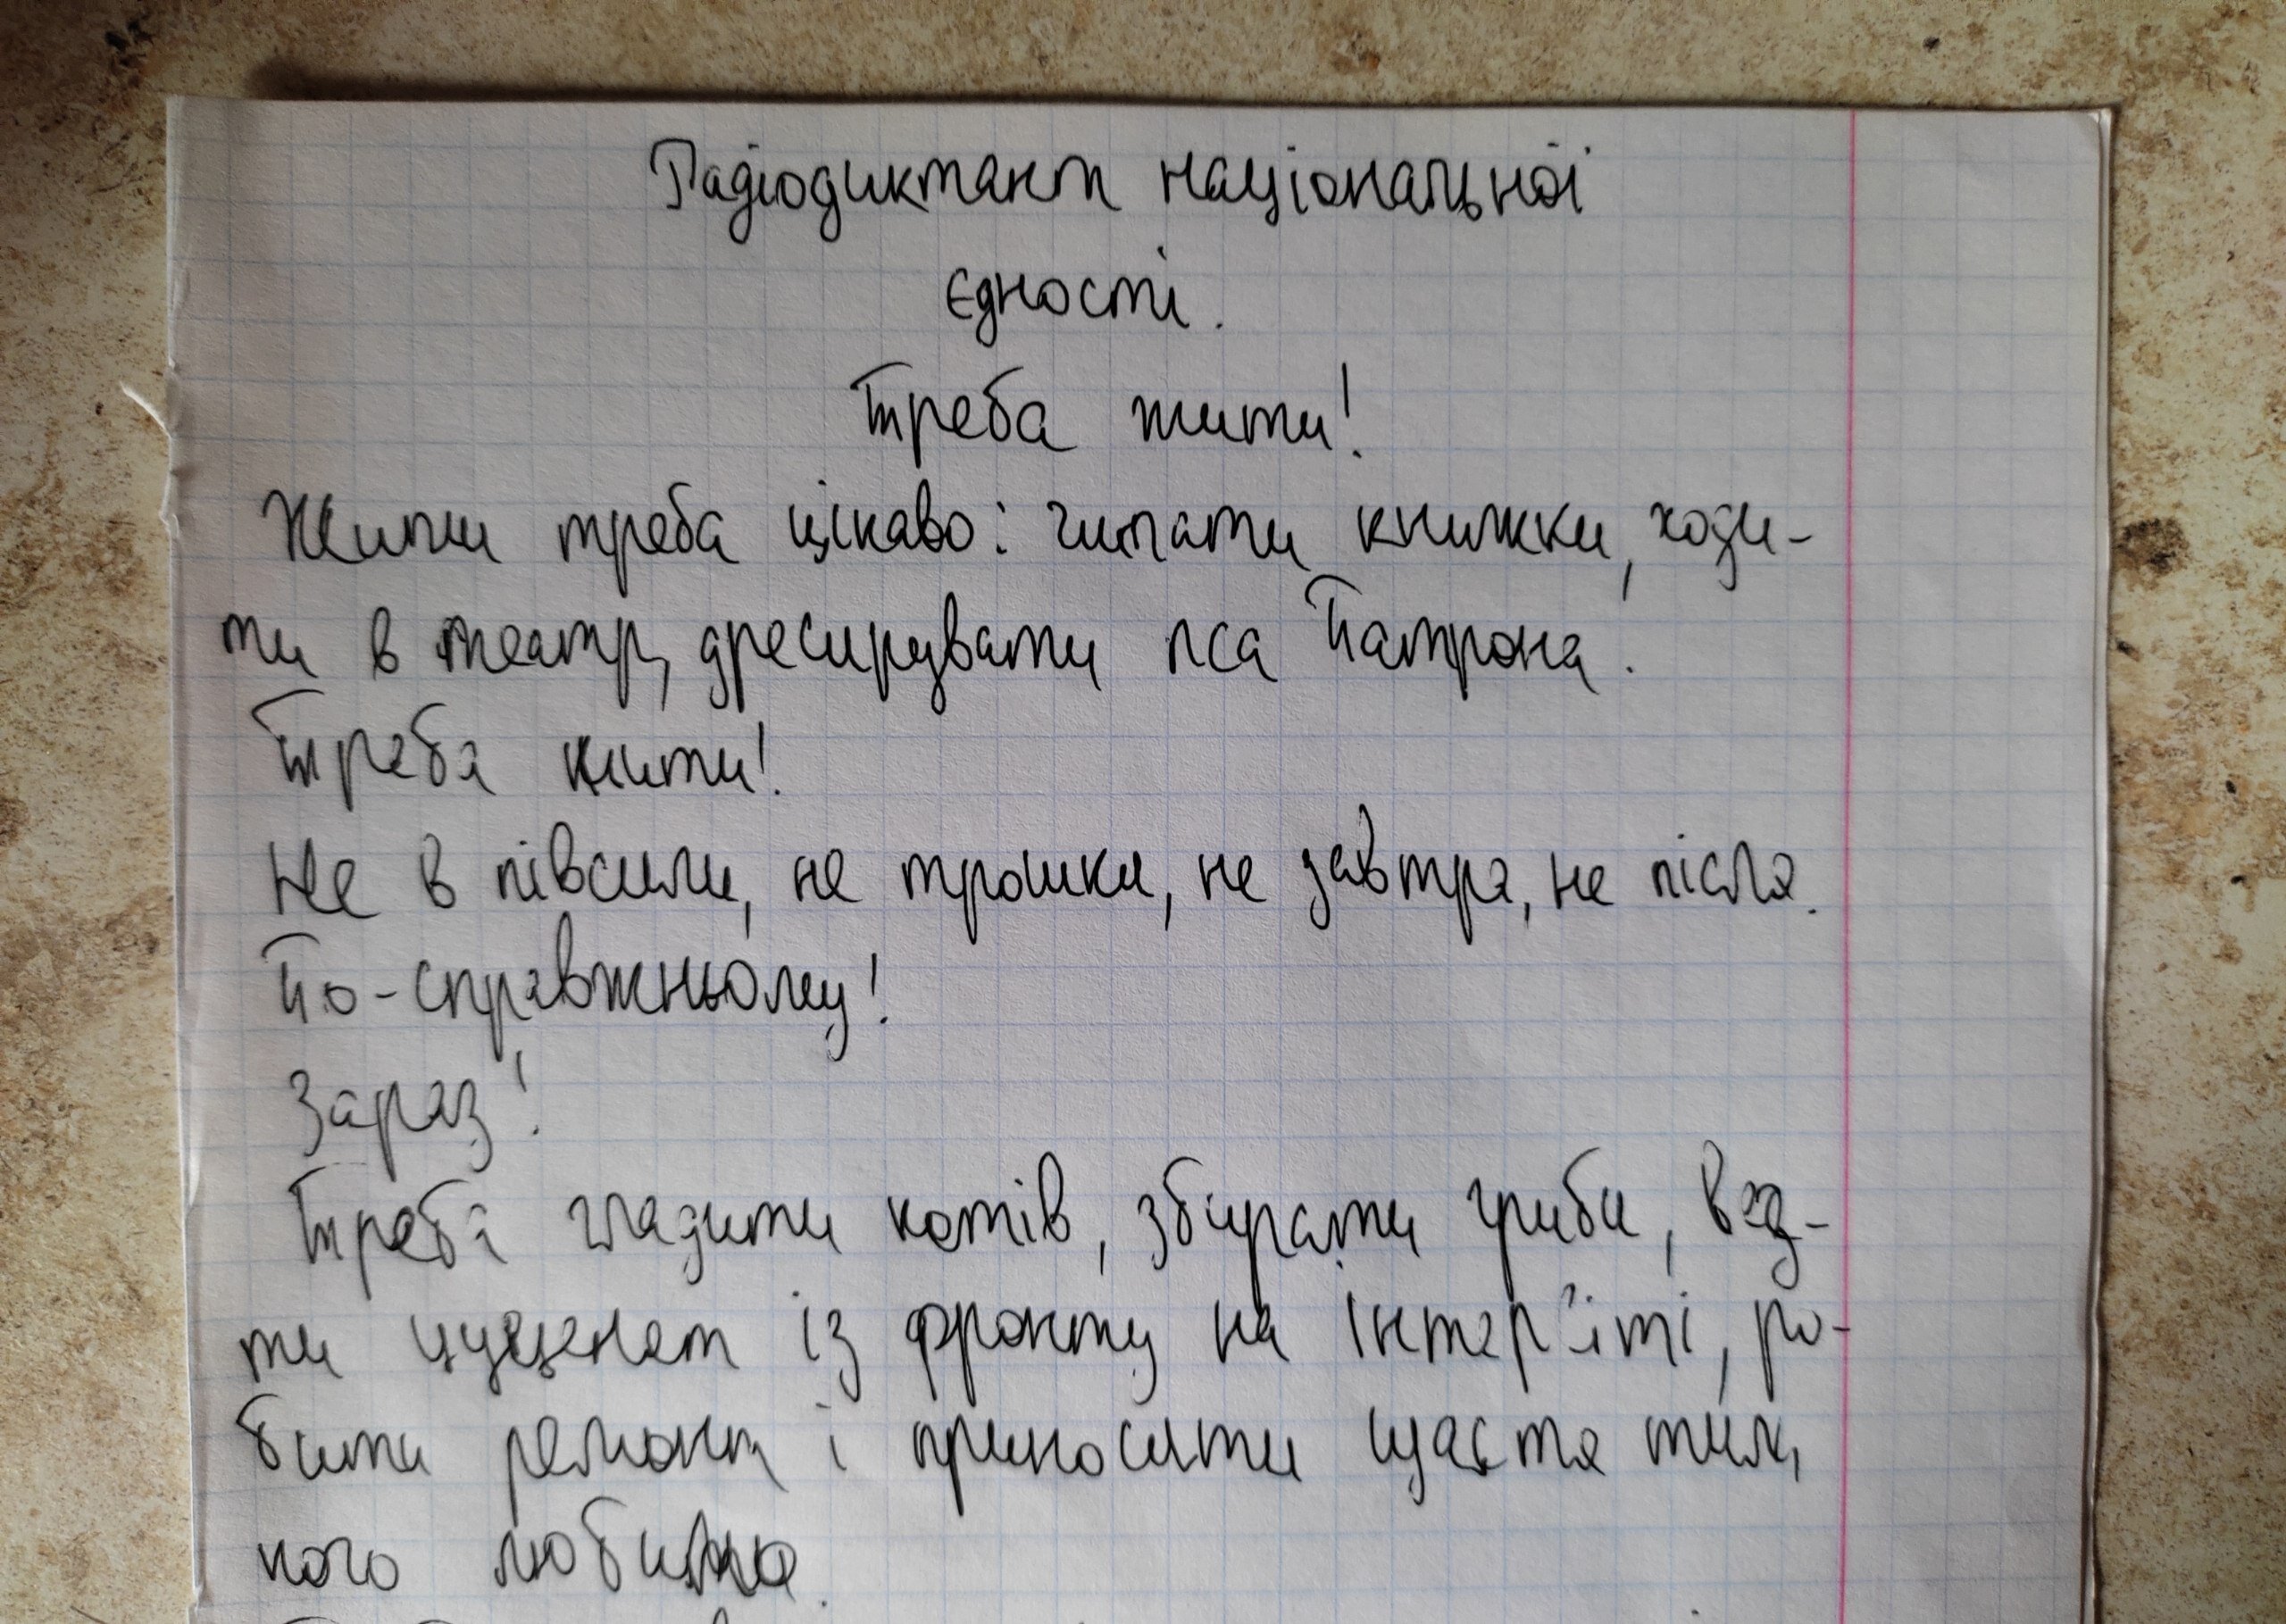 Радіодиктант національної
єдності.
Треба жити!
Жити треба цікаво: читати книжки, ходи-
ти в театр, дресирувати пса Патрона.
Треба жити!
Не в півсили, не трошки, не завтра, не після.
По-справжньому!
Зараз!
Треба гладити котів, збирати гриби, вез-
ти цуценят із фронту на інтер'їті, ро-
бити ремонт і приносити щастя тим,
кого любимо.